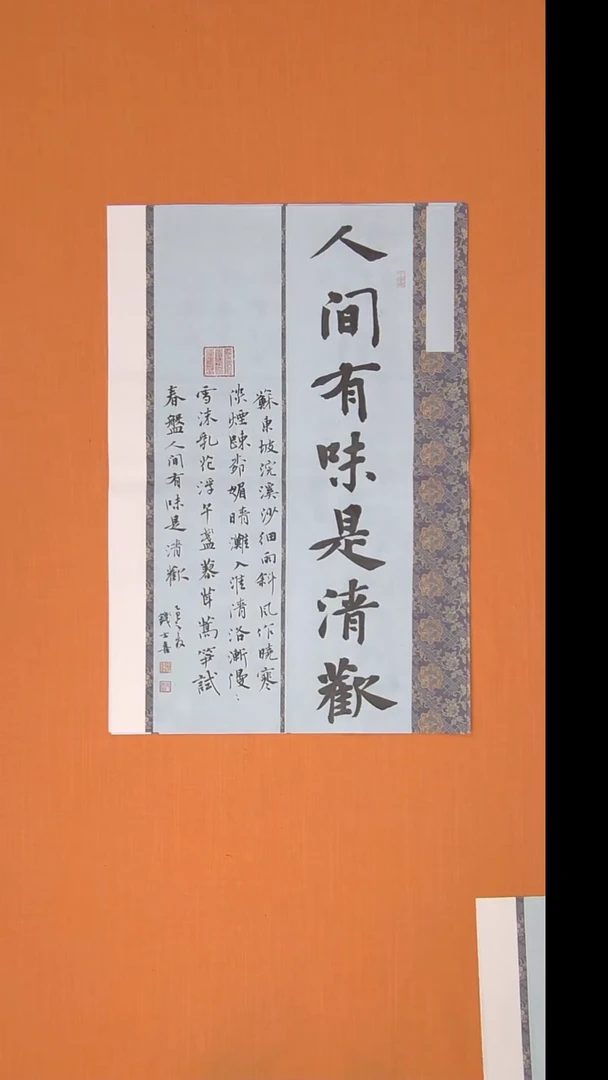 人间有味是清歡
蘇東坡浣溪沙细雨斜风作晓寒
淡煙踈柳媚晴灘入淮清洛漸漫〻
雪沫乳花浮午盞蓼茸蒿筍試
春盤人间有味是清歡